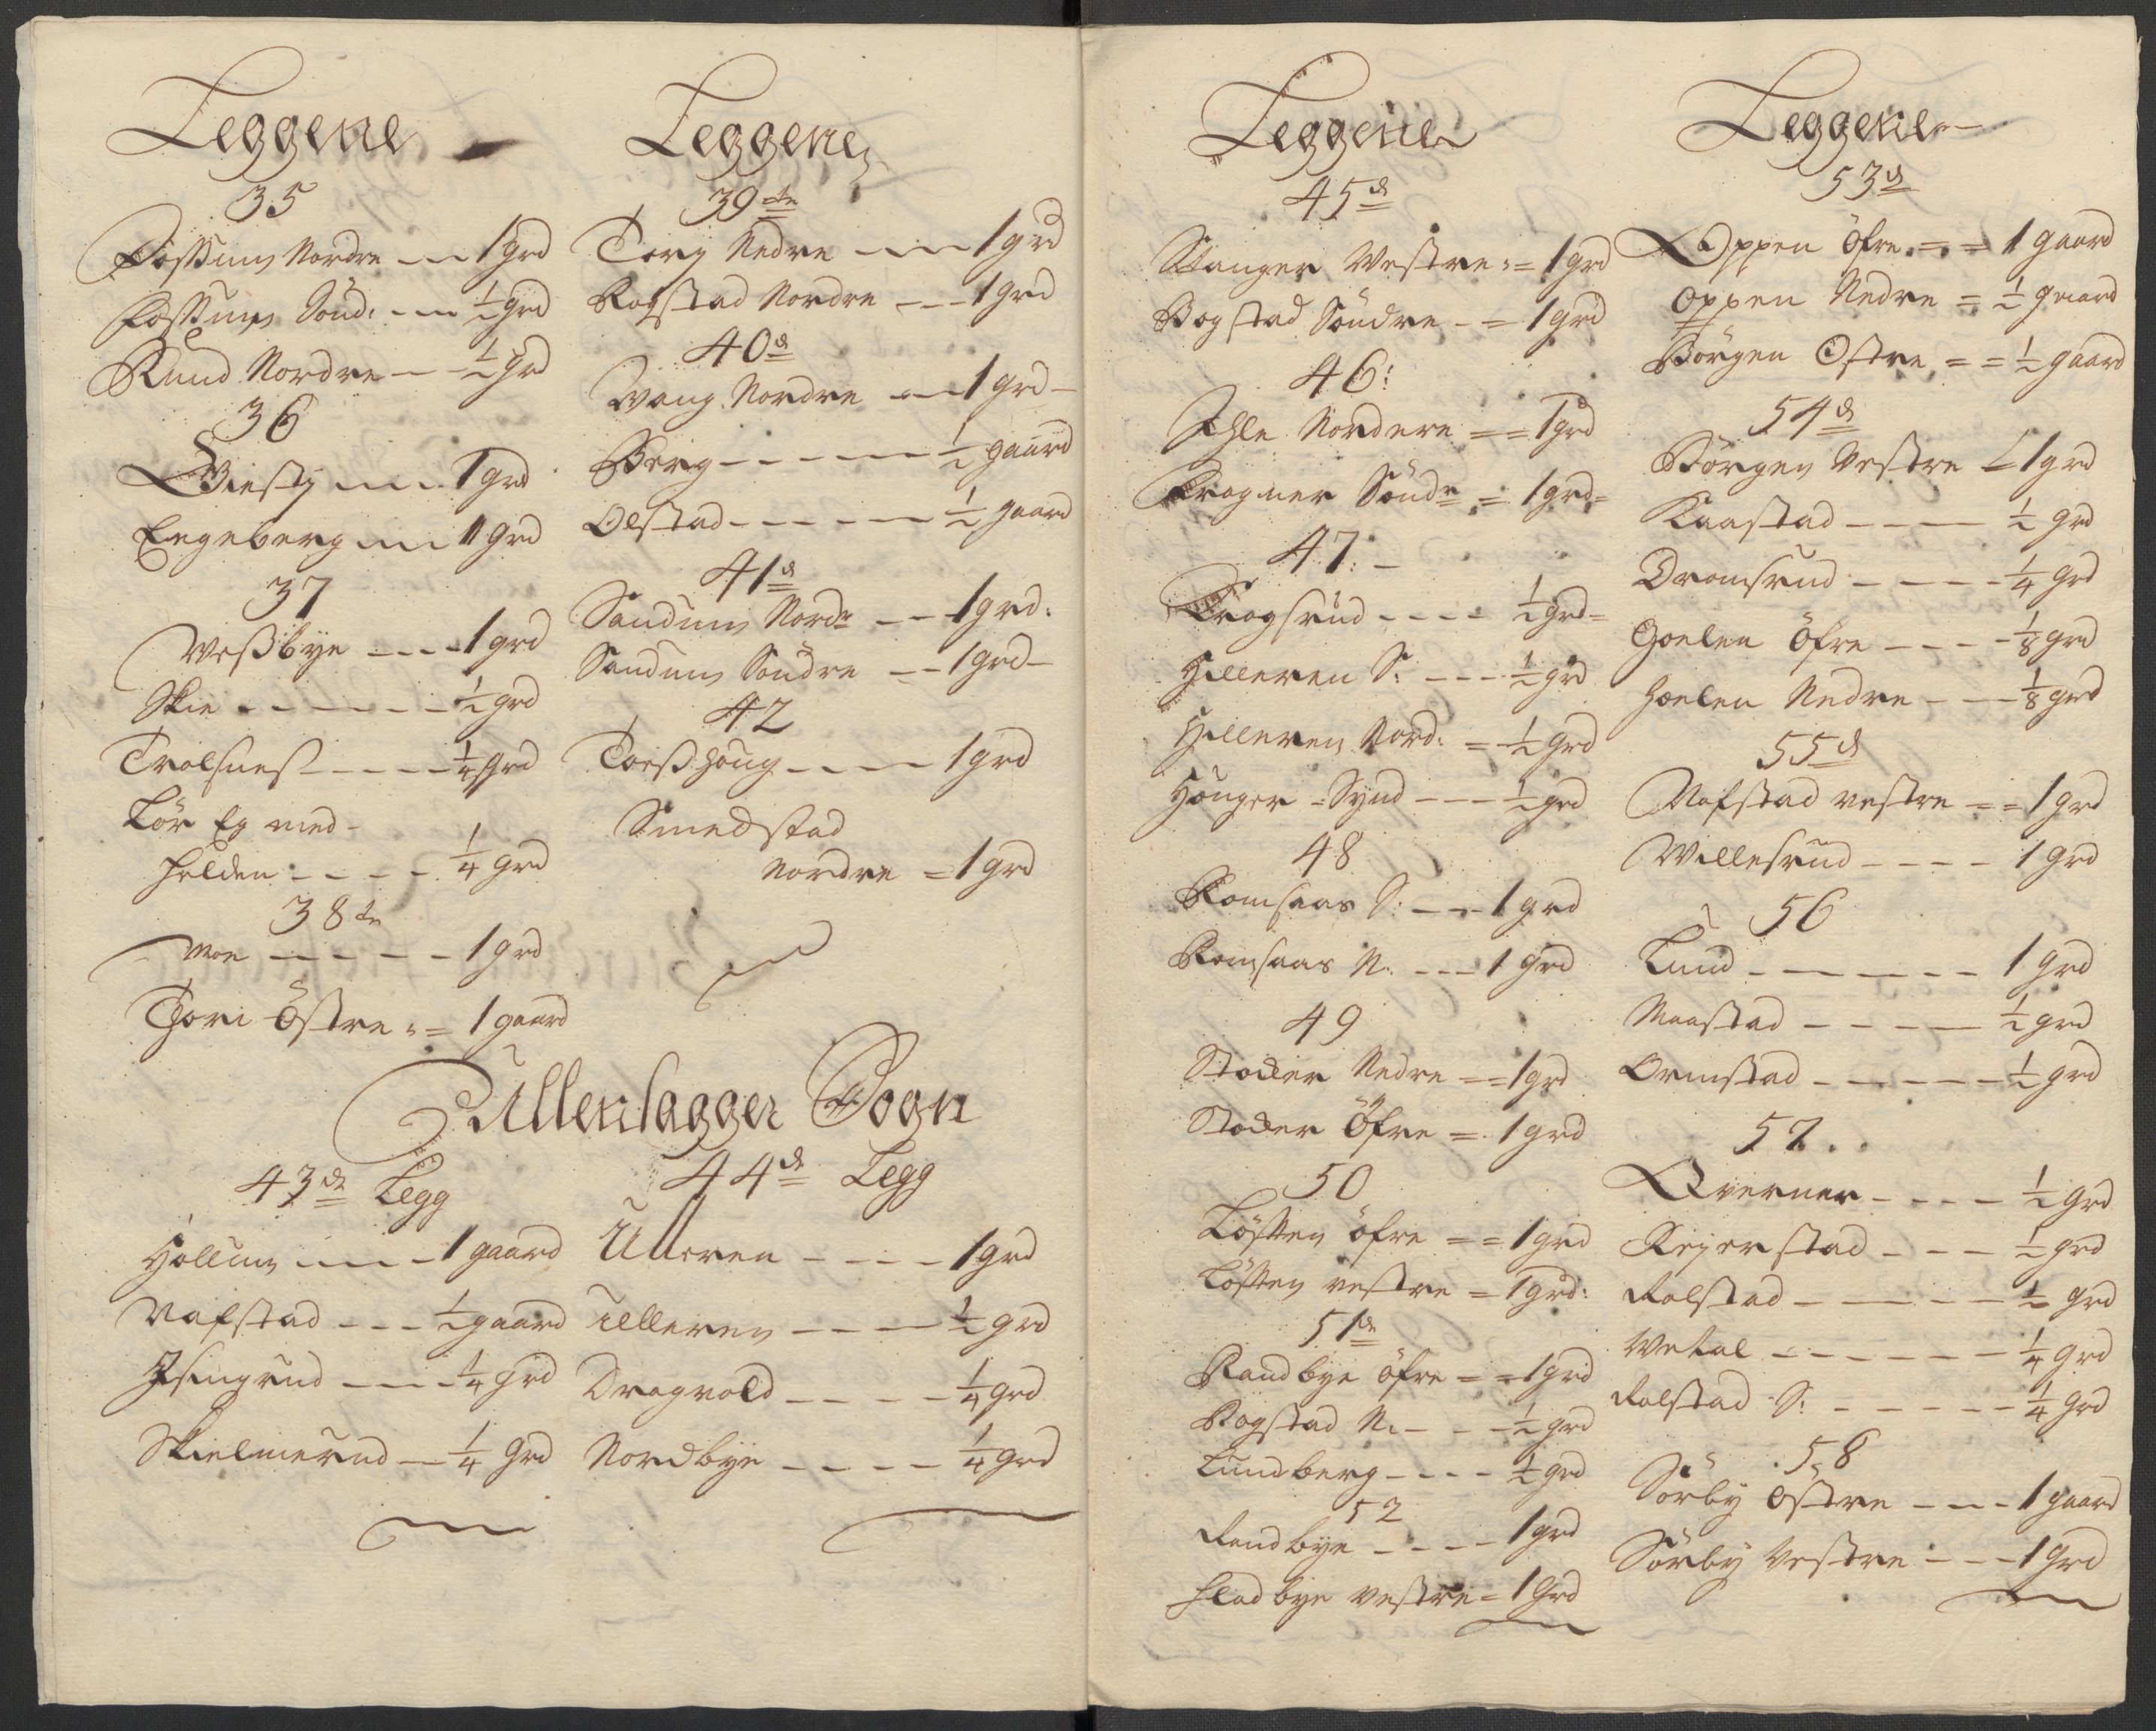 Leggene
35
Fossum Nordre --- 1 grd
Fossum Sönd: --- 1/2 grd
Ruud Nordre --- 1/2 grd
36
Viesty --- 1 grd
Engeberg --- 1 grd
37
Wessbye --- 1 grd
Skie --- 1/2 grd
Trolsness --- 1/4 grd
Lör Eg med
helden --- 1/4 grd
38de
Moe --- 1 grd
Thori Östre = 1 gaard
Leggene
39de
Torg Nedre --- 1 grd
Rogstad Nordre --- 1 grd
40d
Wang Nordre --- 1 grd
Berg --- 1/2 gaard
Olstad --- 1/2 gaard
41d
Sandum Nordr --- 1 grd:
Sandum Söndre --- 1 grd
42
Torsshoug --- 1 grd
Smedstad
Nordre = 1 grd
Ullensagger Sogn
43de Legg
Hollum --- 1 gaard
Nafstad --- 1/2 gaard
Isingrud --- 1/4 grd
Skielmerud --- 1/4 grd
44de Legg
Ulleren --- 1 grd
Ulleren --- 1/2 grd
Dragvold --- 1/4 grd
Nordbye --- 1/4 grd
Leggene
45d
Stanger Westre = 1 grd
Bogstad Söndre = 1 grd
46:
Ihle Nordere == 1 grd
Krogner Söndr = 1 grd
47:
Krogsrud --- 1/2 grd
Hilleren S: --- 1/2 grd
Hilleren Nord: = 1/2 grd
Hönger Synd --- 1/2 grd
48
Romsaas S: --- 1 grd
Romsaas N: --- 1 grd
49
Stocker Nedre == 1 grd
Stocker Öfre = 1 grd
50
Lösten öfre == 1 grd
Lösten vestre = 1 grd:
51de
Randbye öfre = 1 grd
Bogstad N: --- 1/2 grd
Lundberg --- 1/2 grd
52
Randbye --- 1 grd
Hladbye vestre = 1 grd
Leggene
53d
Oppen Öfre == 1 gaard
Oppen Nedre = 1/2 gaard
Börgen Ostre == 1/2 gaard
54d
Börgen Vestre = 1 grd
Kaastad --- 1/2 grd
Dromsrud --- 1/4 grd
Hoelen Öfre --- 1/8 grd
Hoelen Nedre --- 1/8 grd
55d
Nafstad vestre == 1 grd
Willesrud --- 1 grd
56
Lund --- 1 grd
Maastad --- 1/2 grd
Ormstad --- 1/2 grd
57
Qverner --- 1/2 grd
Rejerstad --- 1/2 grd
Kolstad --- 1/2 grd
Vetal --- 1/4 grd
Kolstad S: --- 1/4 grd
58
Sörby Östre --- 1 gaard
Sörby Vestre --- 1 grd